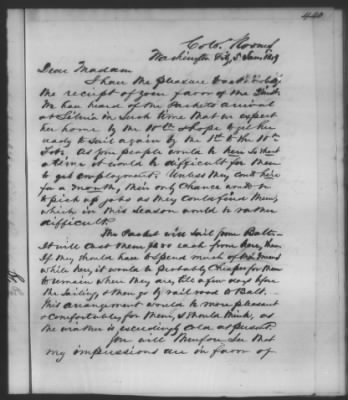 440
Colo. Rooms
Washington City, 5 Jany
Dear Madam
I have the pleasure to
the receipt of your favor of the
We have heard of the Packets arrival
at Liberia in such time that we expect
her home by the & hope to get her
ready to sail again by the 1st to the 10th
As your people would be here so short
a time it would be difficult for them
to get employment. Unless they could hire
for a month, their only chance would be
to pick up jobs as they could find them,
which in this season would be rather
difficult.
The Packet will sail from Balto.
It will cost them each from here, then
If they should have to spend much of
while here, it would be probably cheaper for them
to remain where they are, till a few days before
the sailing, & then go by railroad to Balt.
This arrangement would be more pleasant
& comfortable for them, I should think, as
the weather is exceedingly cold at present.
You will therefore see that
my impressions are in favor of